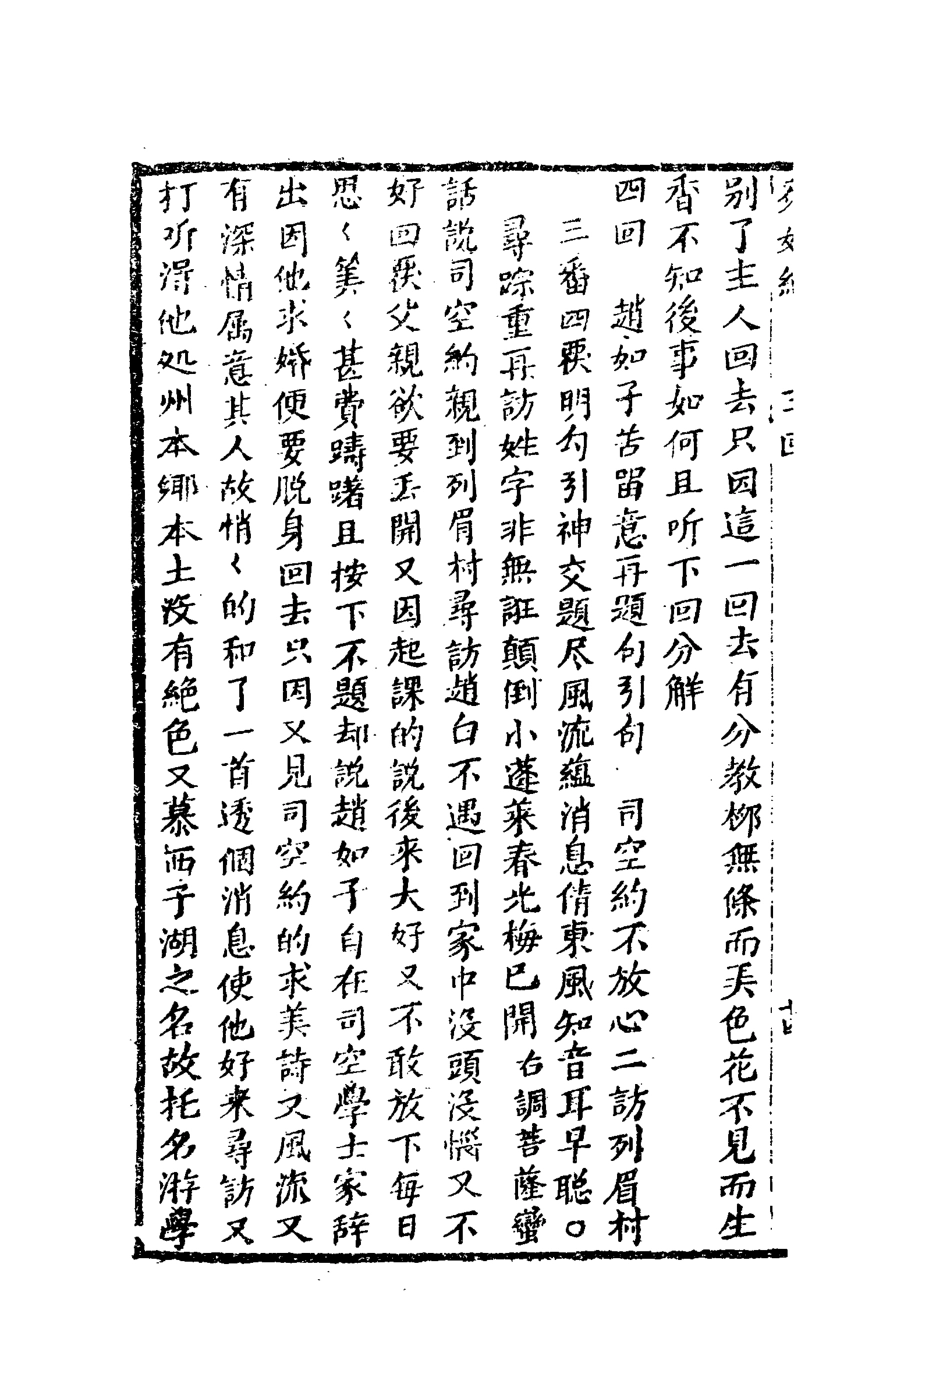 別了主人回去只因這一回去有分教柳無條而美色花不見而生
香不知後事如何且听下回分解
四回　趙如子苦留意再題句引句　司空約不放心二訪列眉村
三番四覆明勾引神交題尽風流蘊消息倩東風知音耳早聡〇
尋踪重再訪姓字非無誑顛倒小蓬萊春光梅已開右調菩薩蠻
話説司空約親到列眉村尋訪趙白不遇回到家中没頭没惱又不
好回覆父親欲要丟開又因起課的説後来大好又不敢放下每日
思〱筭〱甚費躊躇且按下不題却説趙如子自在司空學士家辞
出因他求婚便要脱身回去只因又見司空約的求美詩又風流又
有深情属意其人故悄〱的和了一首透個消息使他好来尋訪又
打听得他処州本郷本土没有絶色又慕西子湖之名故托名游學
三回
十四